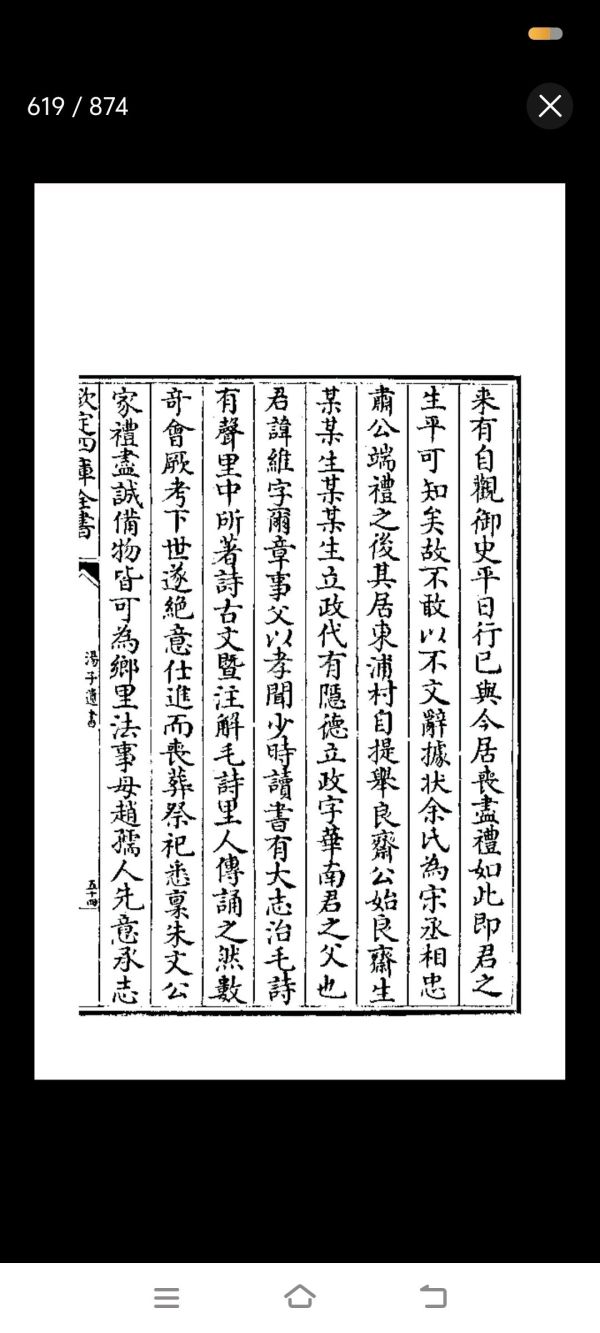 619 / 874
来有自觀御史平日行已與今居喪盡禮如此即君之
生平可知矣故不敢以不文辭據状余氏為宋丞相忠
肅公端禮之後其居東浦村自提舉良齋公始良齋生
某某生某某生立政代有隱德立政字華南君之父也
君諱維字爾章事父以孝聞少時讀書有大志治毛詩
有聲里中所著詩古文暨注解毛詩里人傳誦之然數
奇會厥考下世遂絶意仕進而喪葬祭祀悉稟朱文公
家禮盡誠備物皆可為鄉里法事母趙孺人先意承志
欽定四庫全書
湯子遺書
五十四